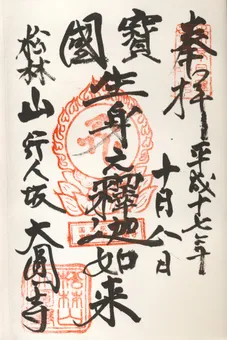 奉拝
平成十七年
十月八日
國寶
生身之釋迦如来
松林山
行人坂
大圓寺
松林山